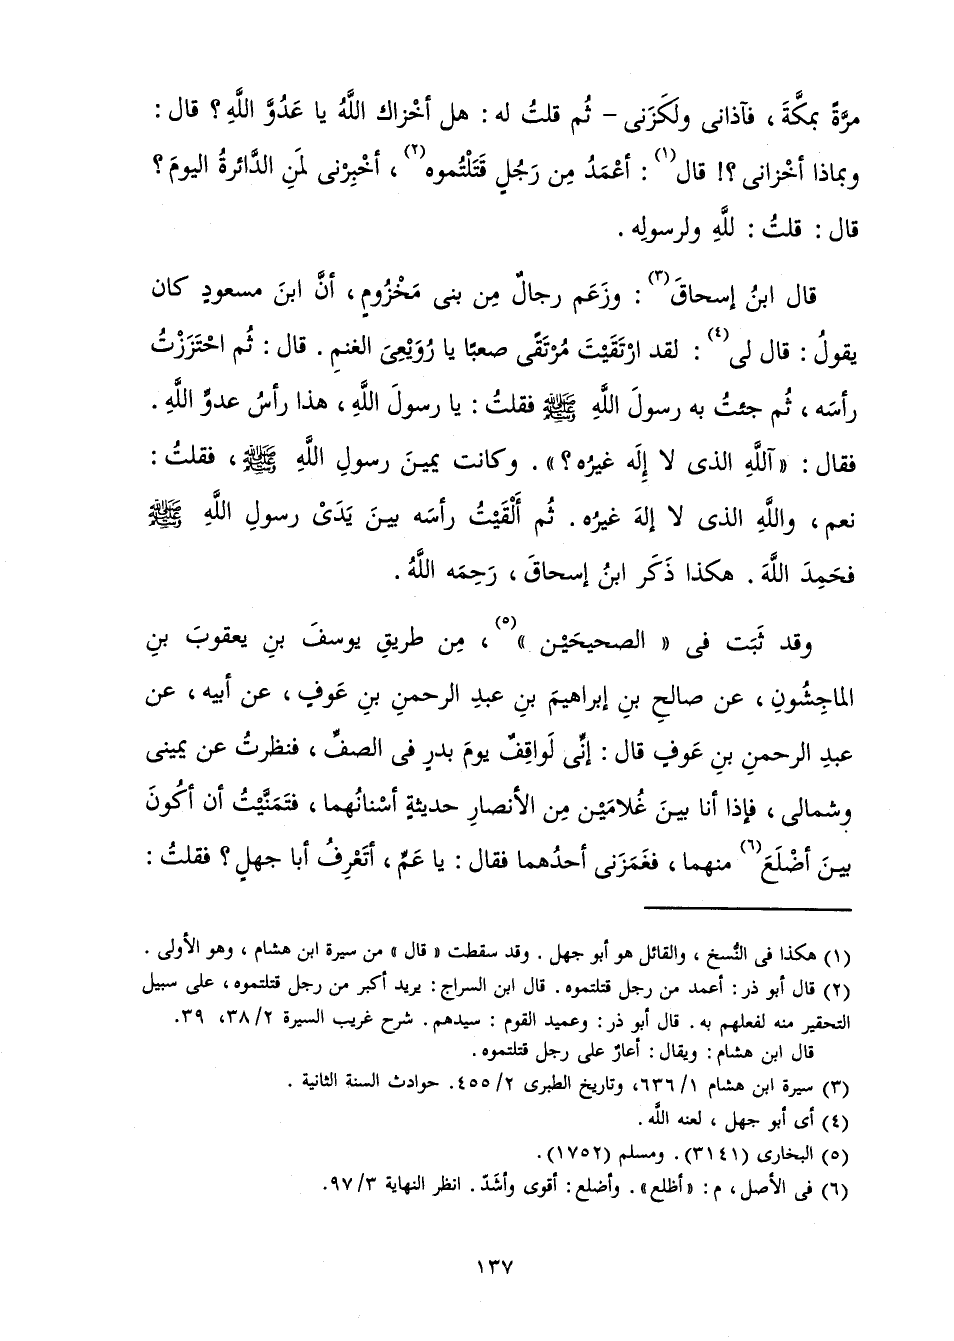 مرَّةً بمكَّةَ ، فآذانى ولكَزَنى - ثُم قلتُ له : هل أخْزاك اللَّهُ يا عَدُوَّ اللَّهِ ؟ قال :
وبماذا أخْزانى ؟! قال(١) : أعْمَدُ مِن رَجُلٍ قَتَلْتُموه(٢) ، أخبِرْنى لمَنِ الدَّائرةُ اليومَ ؟
قال : قلتُ : للَّهِ ولرسولِه .
قال ابنُ إسحاقَ(٣) : وزَعَم رجالٌ مِن بنى مَخْزُومٍ ، أنَّ ابنَ مسعودٍ كان
يقولُ : قال لى(٤) : لقد ارْتَقَيْتَ مُرْتَقًى صعبًا يا رُوَيْعِىَ الغنمِ . قال : ثُم احْتَزَزْتُ
رأسَه ، ثُم جئتُ به رسولَ اللَّهِ ﷺ فقلتُ : يا رسولَ اللَّهِ ، هذا رأسُ عدوِّ اللَّهِ .
فقال : « آللَّهِ الذى لا إلَه غيرُه ؟ » . وكانت يمينَ رسولِ اللَّهِ ﷺ ، فقلتُ :
نعم ، واللَّهِ الذى لا إلهَ غيرُه . ثُم ألْقَيْتُ رأسَه بينَ يَدَىْ رسولِ اللَّهِ ﷺ
فحَمِدَ اللَّهَ . هكذا ذَكَر ابنُ إسحاقَ ، رَحِمَه اللَّهُ .
وقد ثَبَت فى « الصحيحَيْن »(٥) ، مِن طريقِ يوسفَ بنِ يعقوبَ بنِ
الماجِشُونِ ، عن صالحِ بنِ إبراهيمَ بنِ عبدِ الرحمنِ بنِ عَوفٍ ، عن أبيه ، عن
عبدِ الرحمنِ بنِ عَوفٍ قال : إنِّى لَواقِفٌ يومَ بدرٍ فى الصفِّ ، فنظرتُ عن يمينى
وشمالى ، فإذا أنا بينَ غُلامَيْن مِن الأنصارِ حديثةٍ أسْنانُهما ، فتَمنَّيْتُ أن أكُونَ
بينَ أضْلَعَ(٦) منهما ، فغَمَزَنى أحدُهما فقال : يا عَمِّ ، أتَعْرِفُ أبا جهلٍ ؟ فقلتُ :
(١) هكذا فى النُّسخ ، والقائل هو أبو جهل . وقد سقطت « قال » من سيرة ابن هشام ، وهو الأولى .
(٢) قال أبو ذر : أعمد من رجل قتلتموه . قال ابن السراج : يريد أكبر من رجل قتلتموه ، على سبيل
التحقير منه لفعلهم به . قال أبو ذر : وعميد القوم : سيدهم . شرح غريب السيرة ٢/ ٣٨، ٣٩.
قال ابن هشام : ويقال : أعارٌ على رجل قتلتموه .
(٣) سيرة ابن هشام ١/ ٦٣٦، وتاريخ الطبرى ٢/ ٤٥٥. حوادث السنة الثانية .
(٤) أى أبو جهل ، لعنه اللَّه .
(٥) البخارى (٣١٤١) . ومسلم (١٧٥٢) .
(٦) فى الأصل ، م : « أظلع » . وأضلع : أقوى وأشدّ . انظر النهاية ٣/ ٩٧.
١٣٧